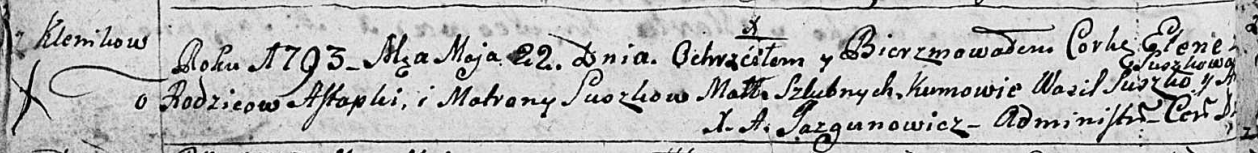 Klenikow Roku 1793 Mca Maja 22. Dnia. Ochrzciłem y Bierzmowałem Corkę Elenę
Suszkową
o Rodzicow Astapki, i Matrony Suszkow Małż. Szlubnych. Kumowie Wasil Suszko y A
X. A. Jazgunowicz - Administr Cer